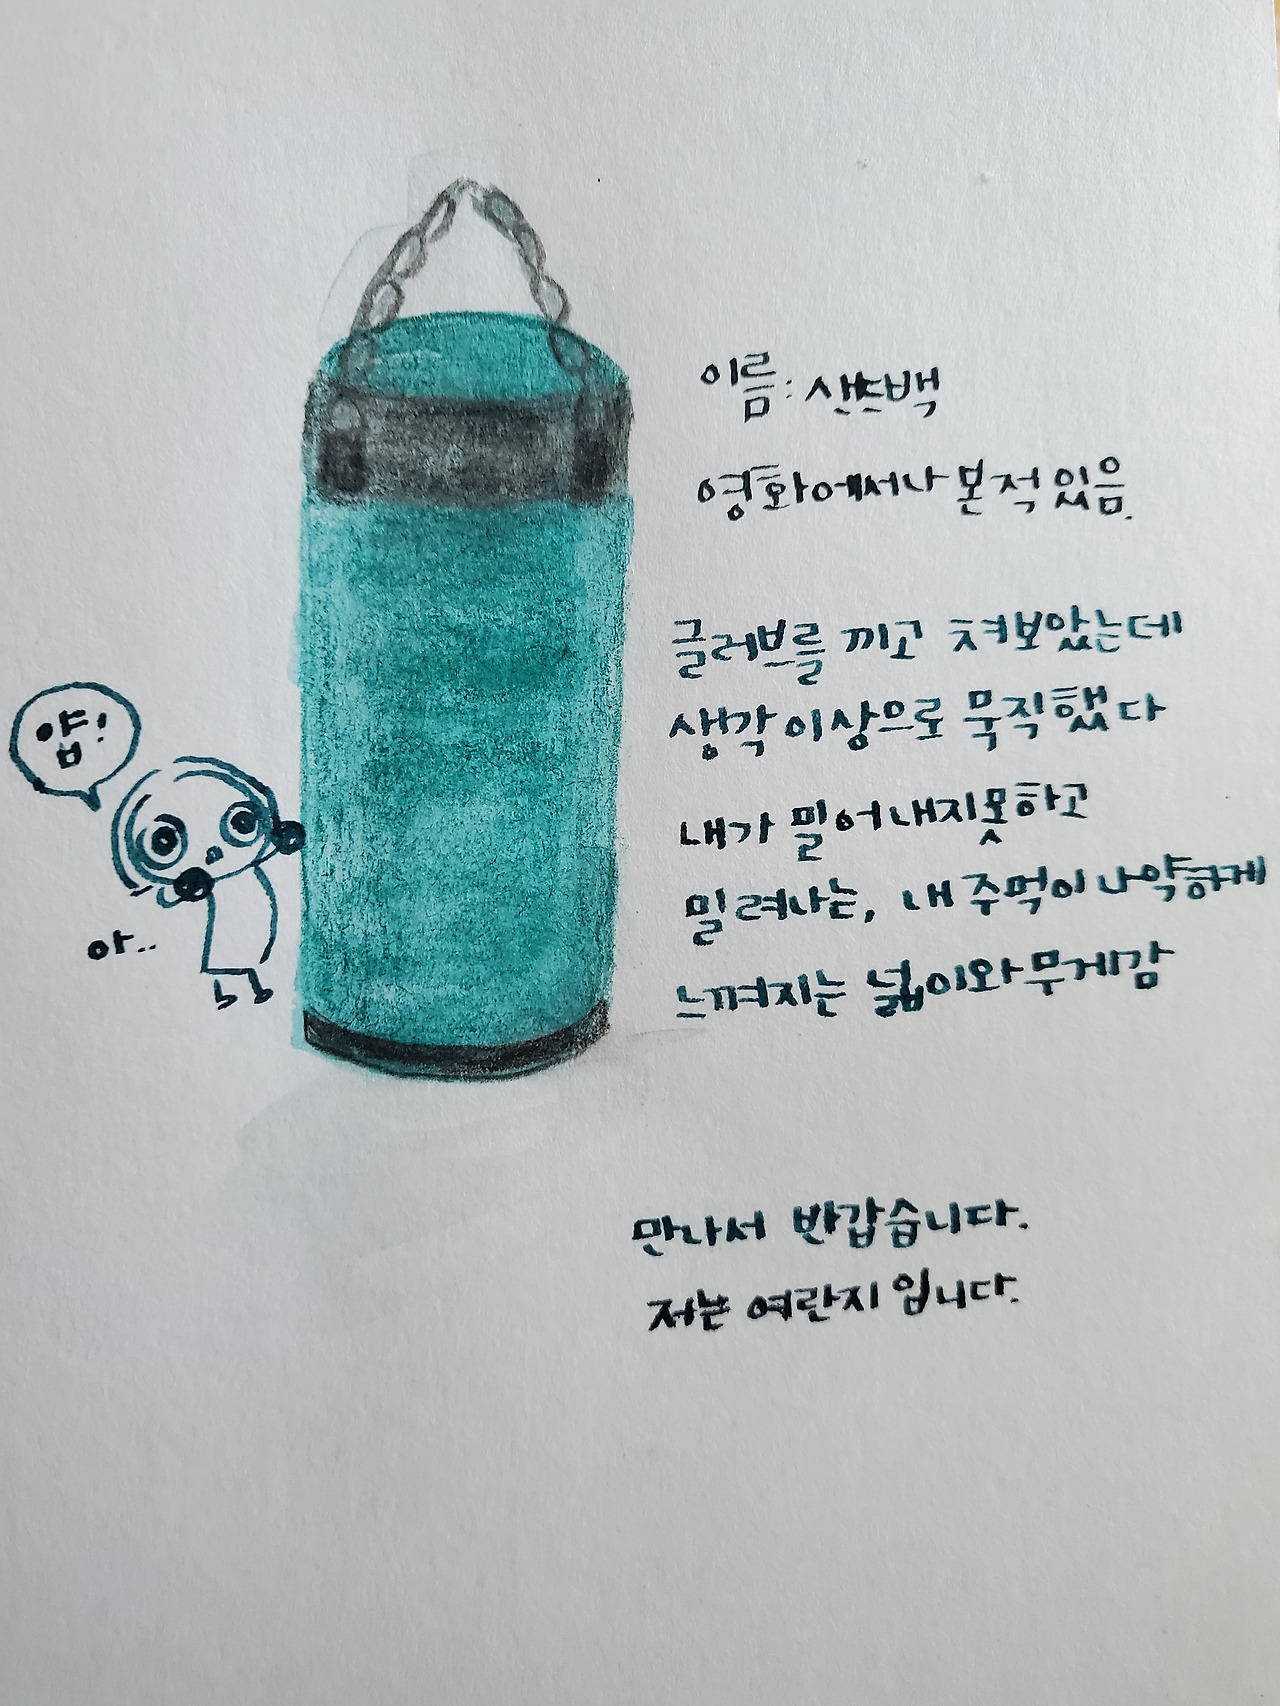 이름: 샌드백
영화에서나 본적 있음.
글러브를 끼고 쳐보았는데
생각 이상으로 묵직했다
내가 밀어내지못하고
밀려나는, 내 주먹이 나약하게
느껴지는 넓이와 무게감
얍!
아..
만나서 반갑습니다.
저는 여란지 입니다.